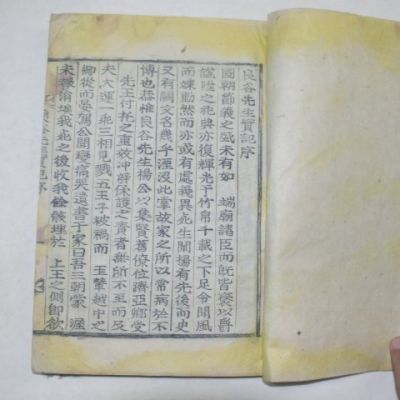 良谷先生實記序
國朝節義之盛未有如 端廟諸臣而旣皆褒以爵
諡隆之祀典亦復輝光于竹帛千載之下足令聞風
而竦動然而亦或有處義異死生闡揚有先後而史
又有闕文名幾乎湮沒此掌故家之所以常病於不
博也恭惟良谷先生楊公以集賢舊僚位躋亞卿受
先王付托之重效中辭保護之責者無所不至而及
夫大運一乖三相見戮五王子被禍而 玉輦越中之
御從而晏駕公聞變痛哭遺書于家曰吾三朝蒙 渥
未報涓埃我死之後收我餘骸埋於 上王之側卽飮
谷先生實記序